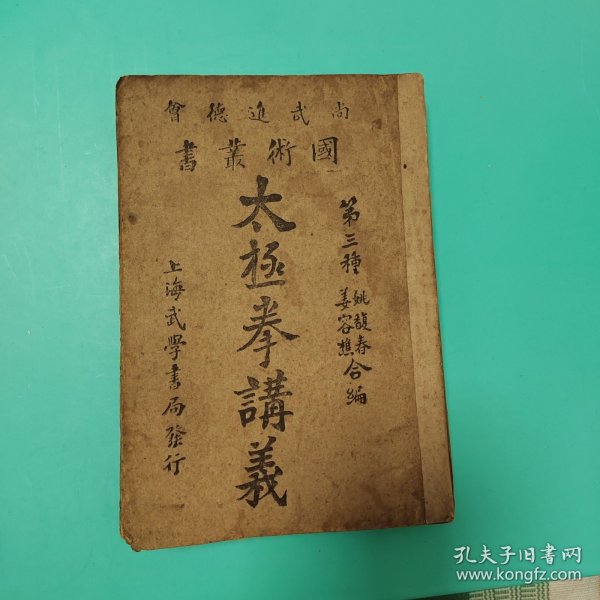 尚武進德會
國術叢書
第三種 姚馥春 姜容樵 合編
太極拳講義
上海武學書局發行
孔夫子旧书网
www.kongfz.com